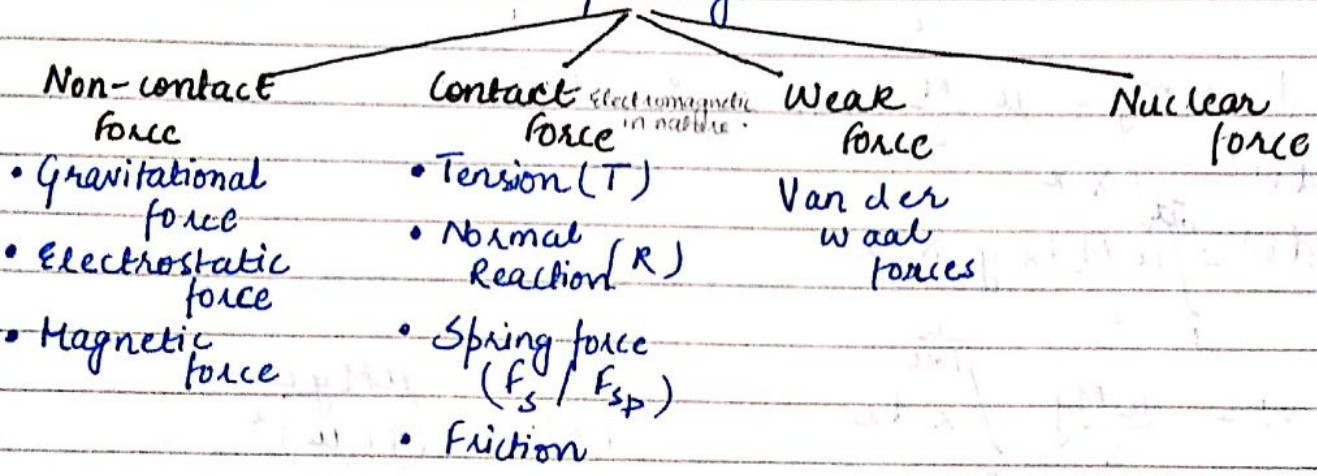 Non-contact
force
• Gravitational
force
• Electrostatic
force
• Magnetic
force
Contact Electromagnetic
force in nature.
• Tension (T)
• Normal
Reaction (R)
• Spring force
(Fs / Fsp)
• Friction
Weak
force
Van der
waal
forces
Nuclear
force